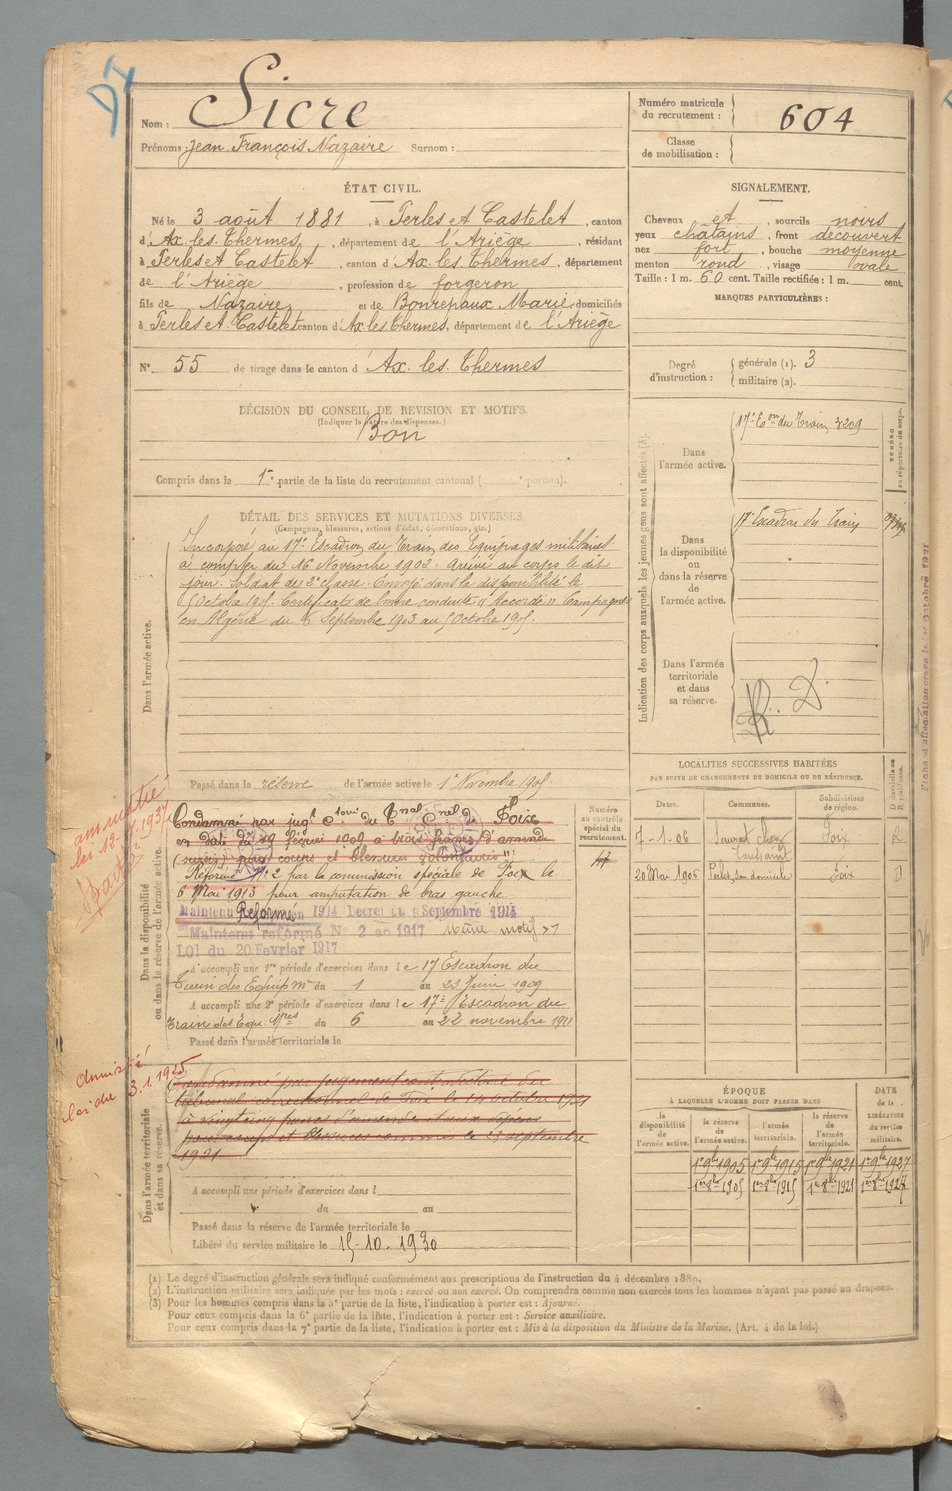 Nom : Sicre
Prénoms : Jean François Nazaire Surnom :
Numéro matricule du recrutement : 604
Classe de mobilisation :
ÉTAT CIVIL.
Né le 3 août 1881, à Perles et Castelet, canton
d'Ax-les-Thermes, département de l'Ariège, résidant
à Perles et Castelet, canton d'Ax-les-Thermes, département
de l'Ariège, profession de forgeron
fils de Nazaire et de Bonrepaux Marie domiciliés
à Perles et Castelet canton d'Ax-les-Thermes, département de l'Ariège
N° 55 de tirage dans le canton d'Ax-les-Thermes
SIGNALEMENT.
Cheveux et, sourcils noirs
yeux châtains, front découvert
nez fort, bouche moyenne
menton rond, visage ovale
Taille : 1 m. 60 cent. Taille rectifiée : 1 m. cent.
MARQUES PARTICULIÈRES :
Degré d'instruction : générale (1). 3
militaire (2).
DÉCISION DU CONSEIL DE REVISION ET MOTIFS.
(Indiquer la nature des dispenses.)
Bon
Compris dans la 1re partie de la liste du recrutement cantonal ( ° portion).
DÉTAIL DES SERVICES ET MUTATIONS DIVERSES.
(Campagnes, blessures, actions d'éclat, décorations, etc.)
Dans l'armée active.
Incorporé au 17e Escadron du Train des Equipages militaires
à compter du 16 Novembre 1902. Arrivé au corps le dit
jour. Soldat de 2e classe. Envoyé dans la disponibilité le
Octobre 1905. Certificat de bonne conduite "Accordé" Campagne
en Algérie du 6 Septembre 1903 au 5 Octobre 1905.
Passé dans la réserve de l'armée active le 1er Novembre 1905
Indication des corps auxquels les jeunes gens sont affectés (3).
Dans l'armée active.
17e Eon du Train 3209
NUMÉRO au répertoire du corps.
Dans la disponibilité ou dans la réserve de l'armée active.
17e Escadron du Train
Dans l'armée territoriale et dans sa réserve.
R. D.
Dans la disponibilité ou dans la réserve de l'armée active.
amnistié
Condamné par jugt ctoire du Tnal Cnel de Foix
en date du 19 février 1909 à trois francs d'amende
(sursis) pour coups et blessures volontaires
Réformé N° 2 par la commission spéciale de Foix le
6 Mai 1913 pour amputation de bras gauche
Maintenu Réformé 1914 Décret du 9 Septembre 1914
Maintenu réformé N° 2 en 1917 Même motif
LOI du 20 Fevrier 1917
A accompli une 1re période d'exercices dans le 17 Escadron du
Train des Equip. M du 1 au 23 Juin 1909
A accompli une 2e période d'exercices dans le 17e Escadron du
Train des Equ. Mres du 6 au 22 novembre 1911
Passé dans l'armée territoriale le
Numéro au contrôle spécial du recrutement.
LOCALITÉS SUCCESSIVES HABITÉES
PAR SUITE DE CHANGEMENTS DE DOMICILE OU DE RÉSIDENCE.
Dates. Communes. Subdivisions de région. D domicile ou R résidence.
7-1-06 Foix
20 Mai 1906 Perles, son domicile Foix D
Dans l'armée territoriale et dans sa réserve.
amnistié
loi du 3.1.1925
Condamné par jugement contradictoire du
tribunal correctionnel de Foix le 14 octobre 1921
à vingt cinq francs d'amende
pour coups et blessures commis le 23 septembre
1921.
A accompli une période d'exercices dans l
du au
Passé dans la réserve de l'armée territoriale le
Libéré du service militaire le 15-10-1930
ÉPOQUE
À LAQUELLE L'HOMME DOIT PASSER DANS
la disponibilité de l'armée active. la réserve de l'armée active. l'armée territoriale. la réserve de l'armée territoriale. DATE de la LIBÉRATION du service militaire.
1er 9bre 1905 1er 9bre 1915 1er 9bre 1921 1er 9bre 1927
1er 8bre 1905 1er 8bre 1915 1er 8bre 1921 1er 8bre 1927
(1) Le degré d'instruction générale sera indiqué conformément aux prescriptions de l'instruction du 4 décembre 1889.
(2) L'instruction militaire sera indiquée par les mots : exercé ou non exercé. On comprendra comme non exercés tous les hommes n'ayant pas passé au drapeau.
(3) Pour les hommes compris dans la 5e partie de la liste, l'indication à porter est : Ajourné.
Pour ceux compris dans la 6e partie de la liste, l'indication à porter est : Service auxiliaire.
Pour ceux compris dans la 7e partie de la liste, l'indication à porter est : Mis à la disposition du Ministre de la Marine. (Art. 4 de la loi.)